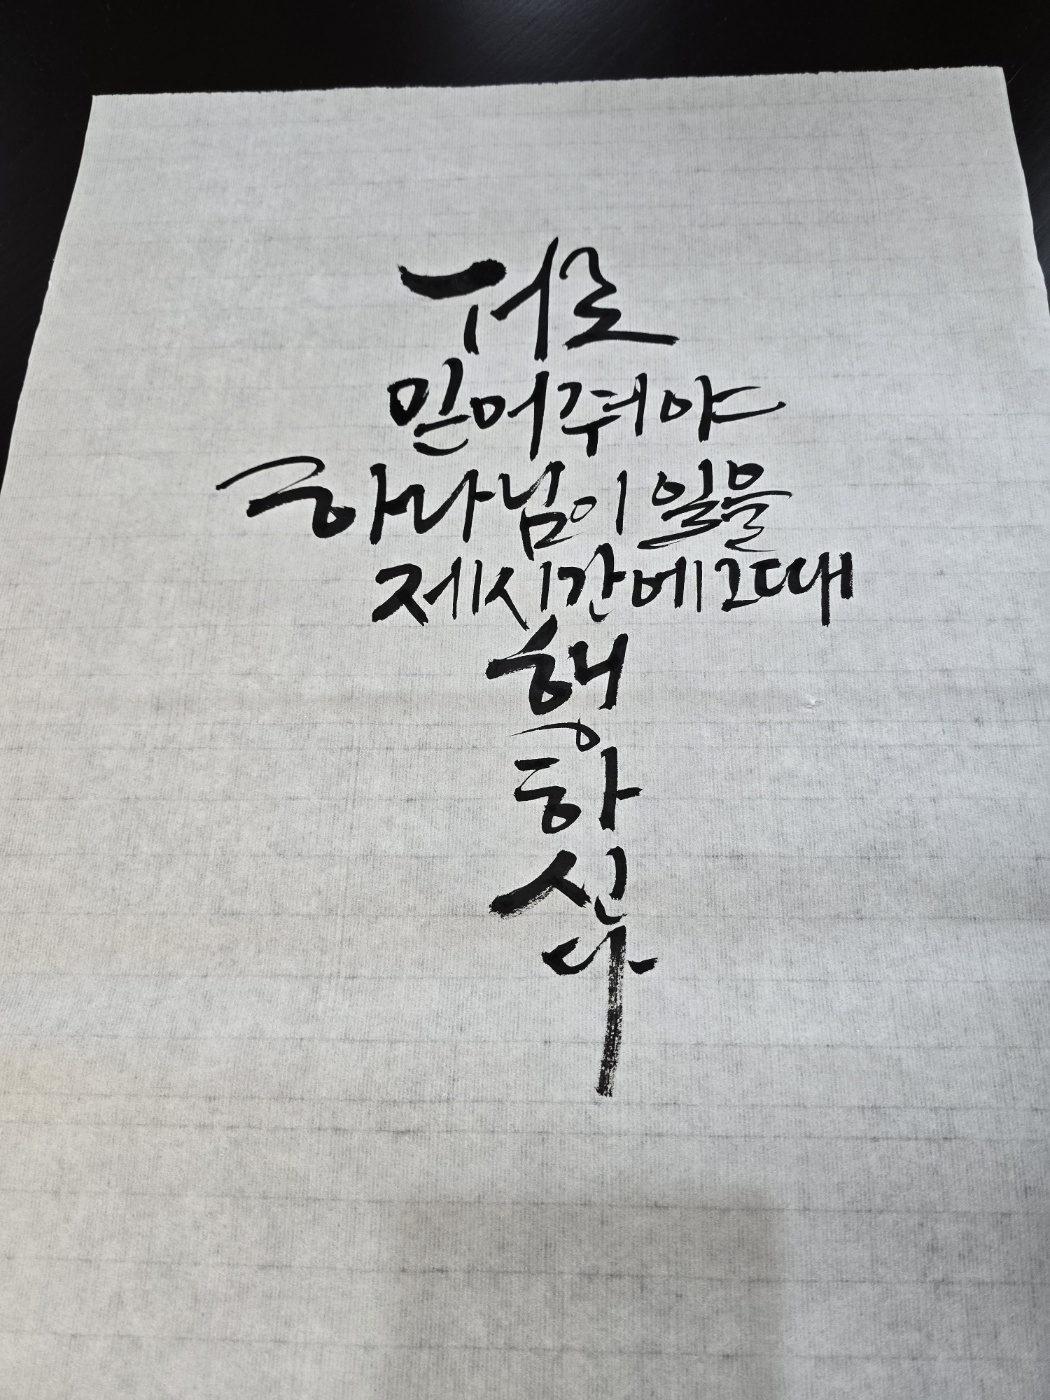 서로
믿어줘야
하나님이 일을
제시간에 그때
행
하
신
다